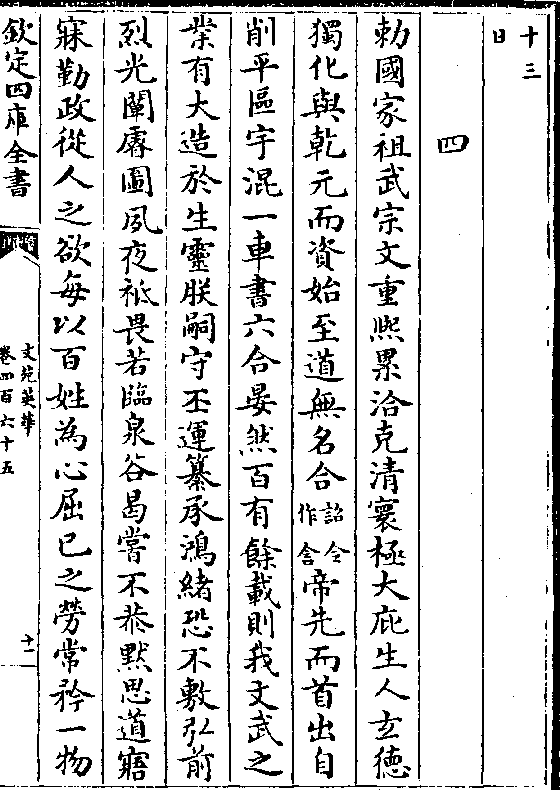 十三
日
四
勅國家祖武宗文重熈累洽克清寰極大庇生人玄德
獨化與乾元而資始至道無名合詔令作含帝先而首出自
削平區宇混一車書六合晏然百有餘載則我文武之
業有大造於生靈朕嗣守丕運纂承鴻緒恐不敷弘前
烈光闡睿圖夙夜祗畏若臨泉谷曷嘗不恭黙思道寤
寐勤政從人之欲每以百姓為心屈已之勞常矜一物
欽定四庫全書
文苑英華
卷四百六十五
十二